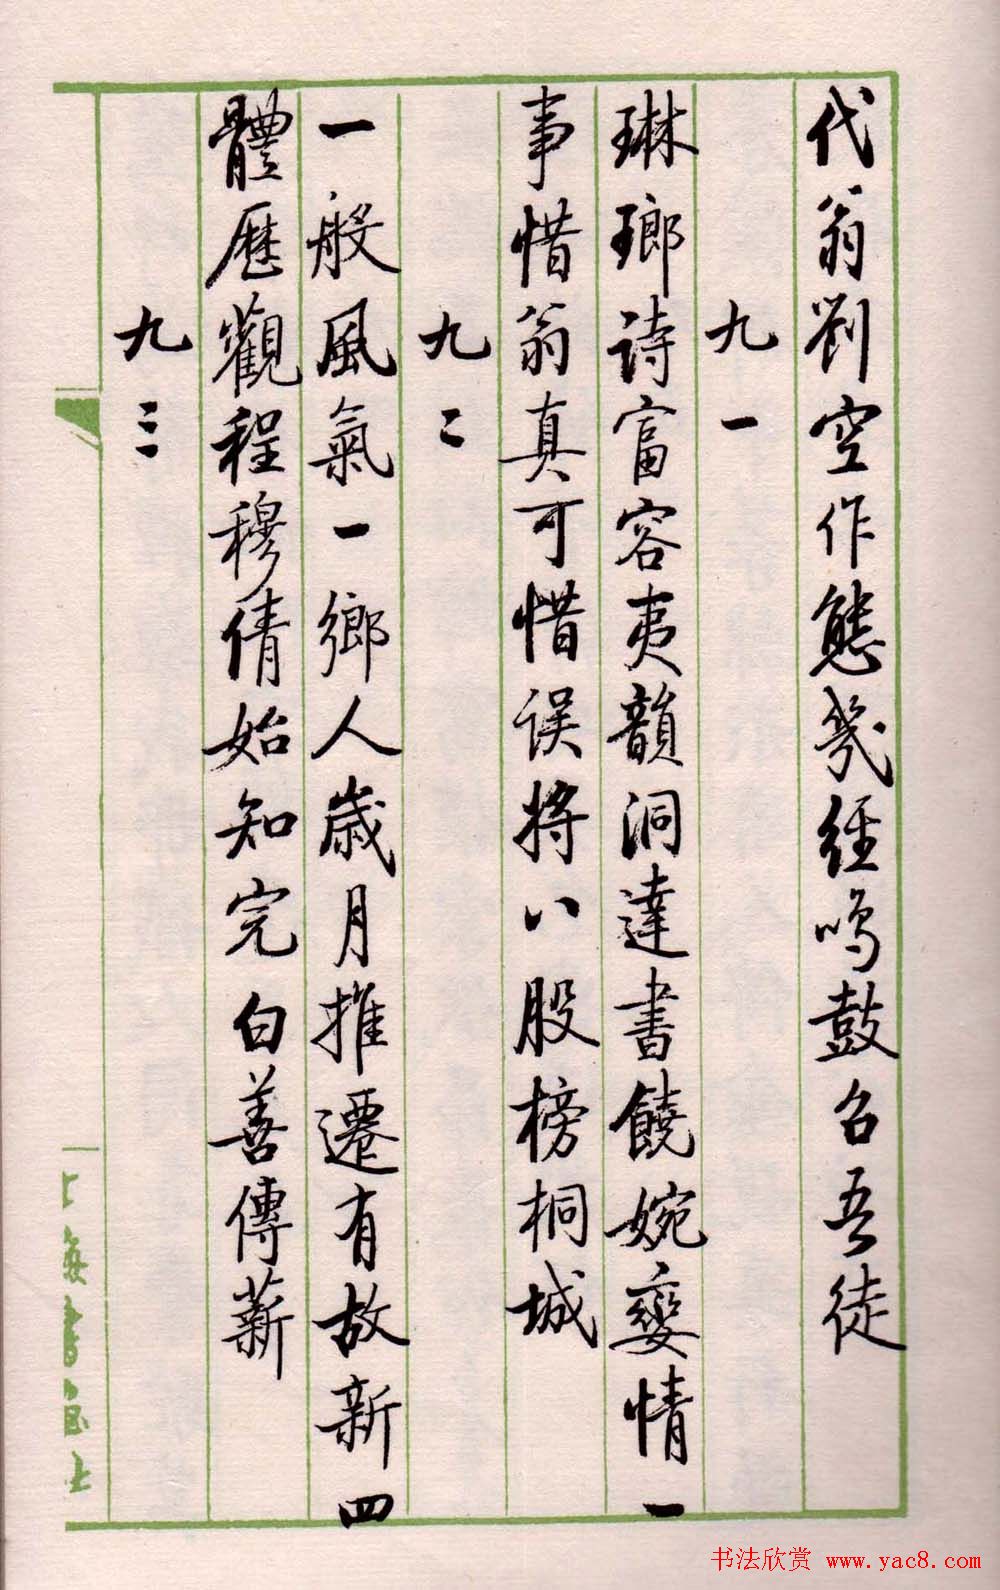 代翁劉空作態幾經鳴鼓召吾徒
九一
琳瑯诗富容夷韻洞達書饒婉孌情一
事惜翁真可惜误将八股榜桐城
九二
一般風氣一鄉人歲月推遷有故新四
體歷觀程穆倩始知完白善傳薪
九三
上海書畫社
书法欣赏 www.yac8.com